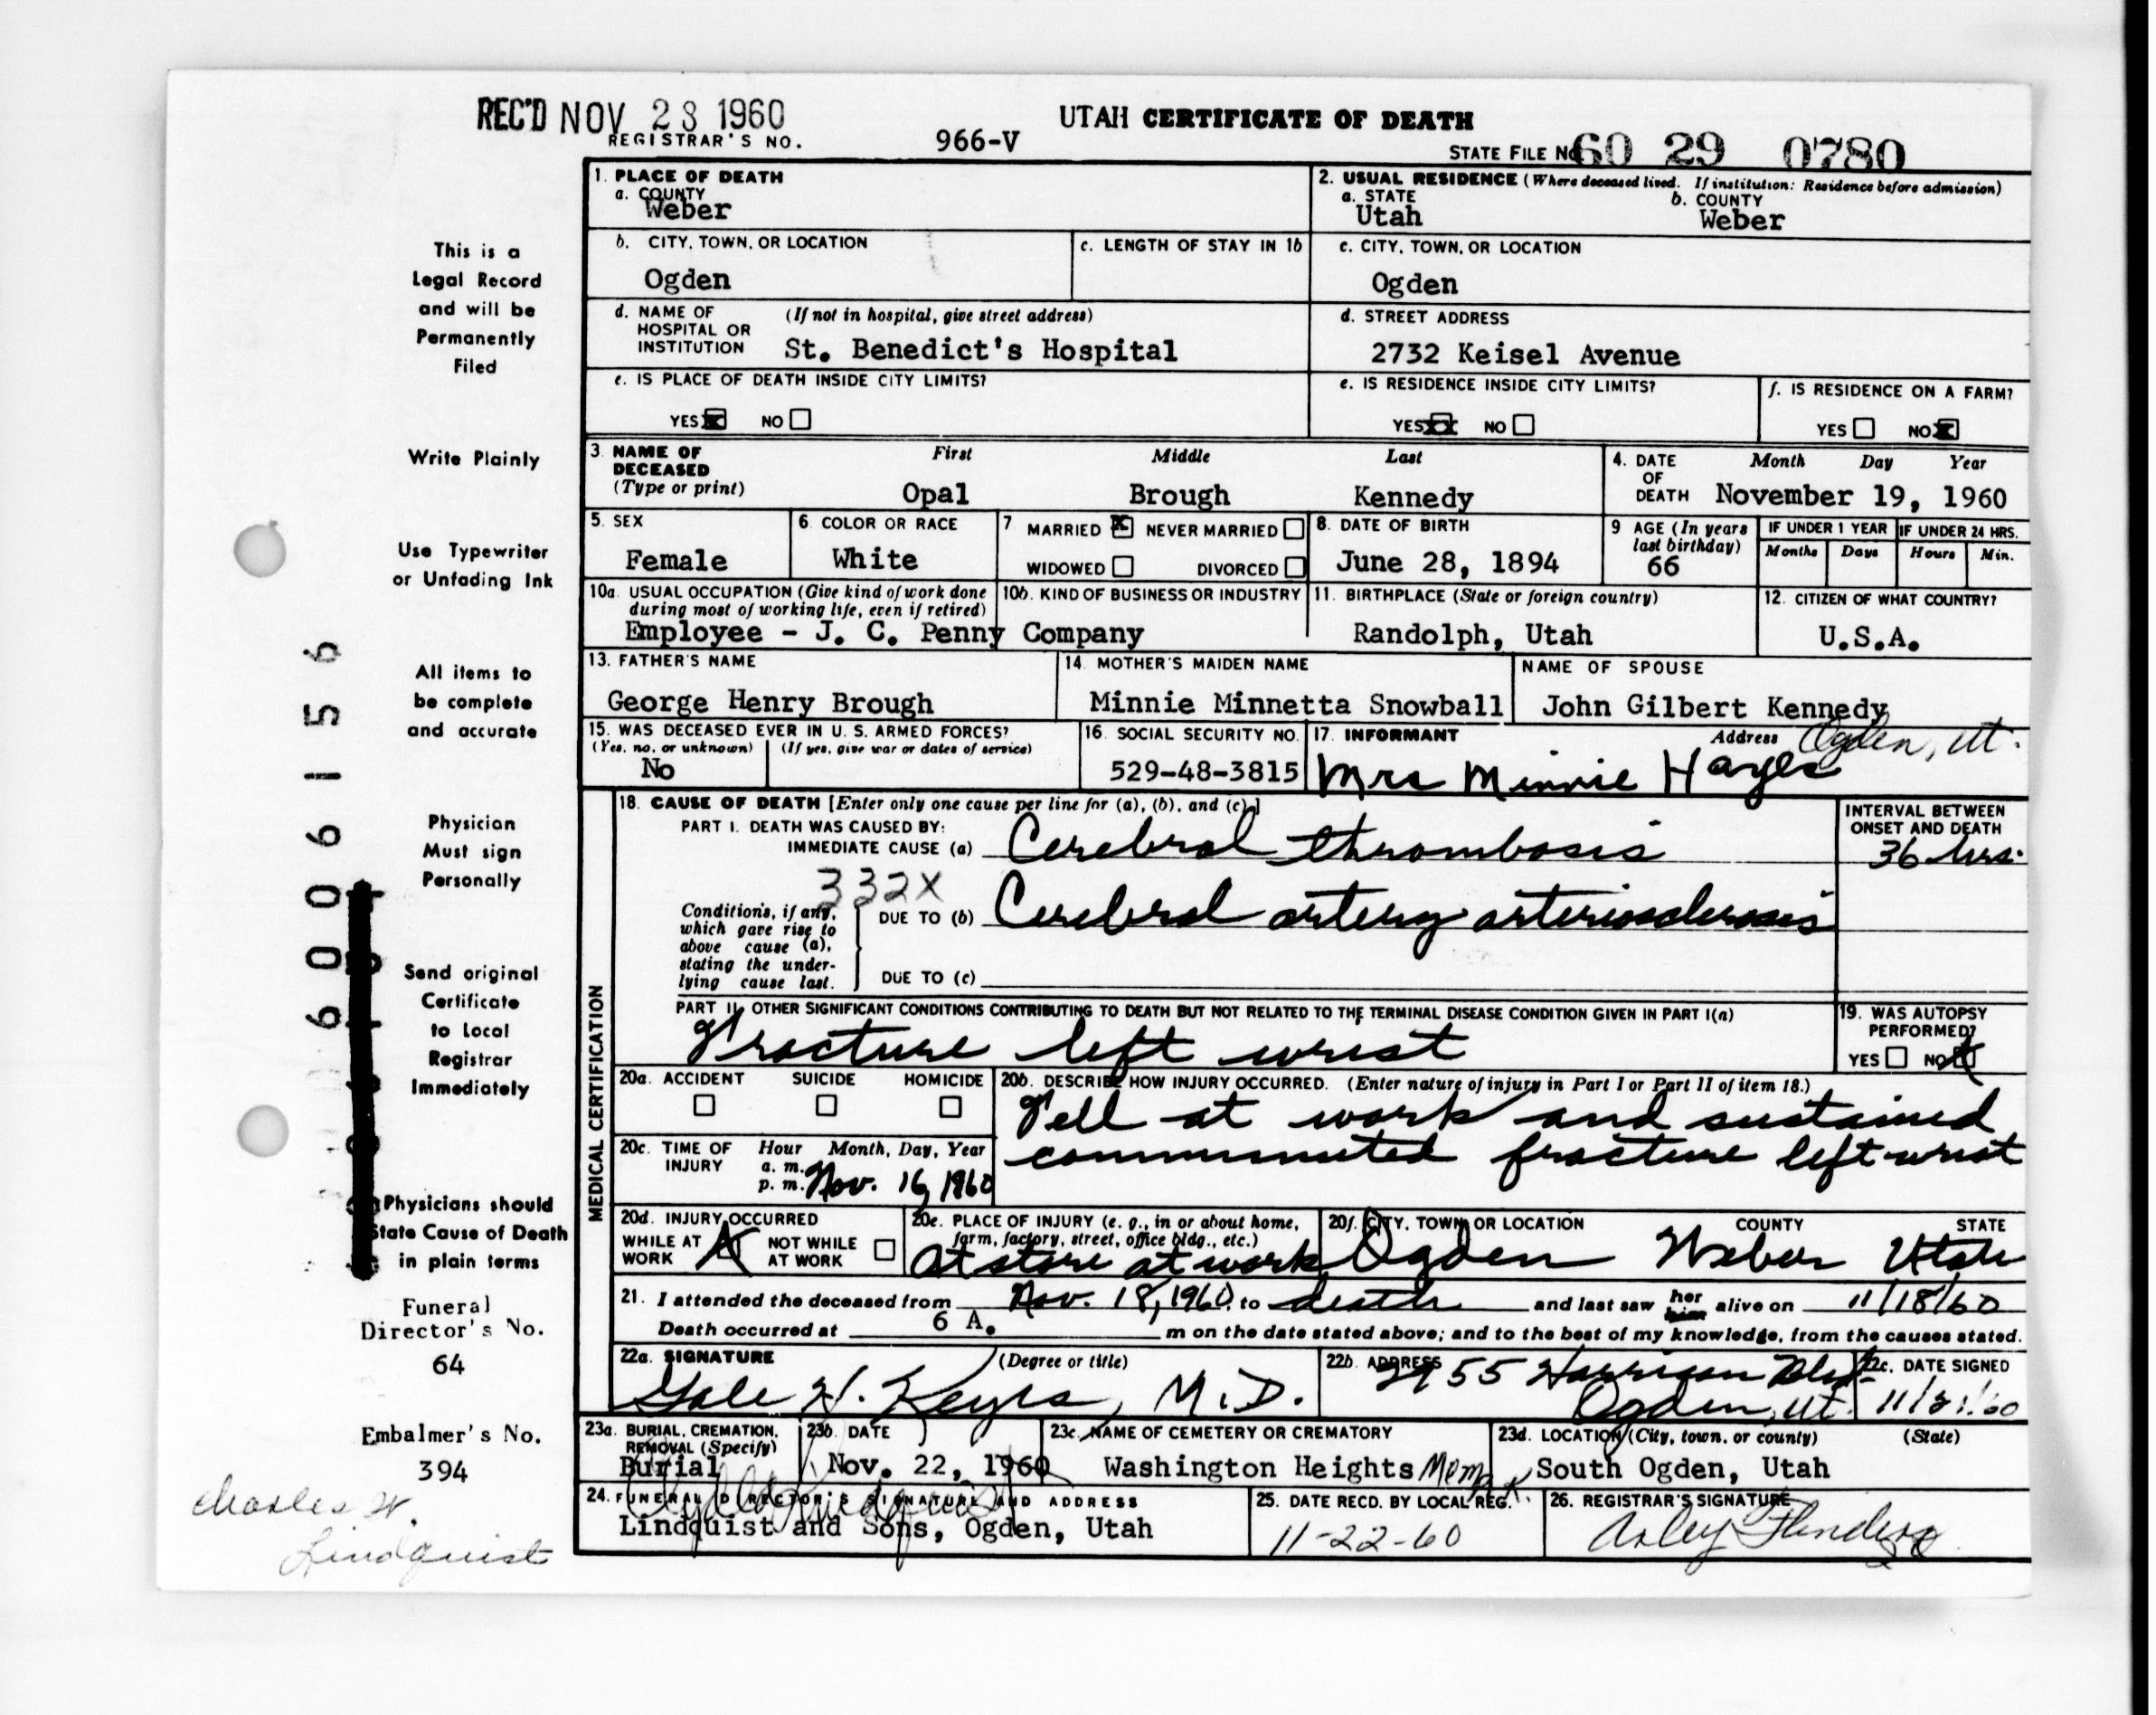 REC'D NOV 23 1960
UTAH CERTIFICATE OF DEATH
REGISTRAR'S NO. 966-V
STATE FILE NO. 60 29 0780
This is a
Legal Record
and will be
Permanently
Filed
Write Plainly
Use Typewriter
or Unfading Ink
All items to
be complete
and accurate
Physician
Must sign
Personally
Send original
Certificate
to Local
Registrar
Immediately
Physicians should
State Cause of Death
in plain terms
Funeral
Director's No.
64
Embalmer's No.
394
Charles W.
Lindquist
60096156
1. PLACE OF DEATH
a. COUNTY
Weber
2. USUAL RESIDENCE (Where deceased lived. If institution: Residence before admission)
a. STATE b. COUNTY
Utah Weber
b. CITY, TOWN, OR LOCATION
Ogden
c. LENGTH OF STAY IN 1b
c. CITY, TOWN, OR LOCATION
Ogden
d. NAME OF (If not in hospital, give street address)
HOSPITAL OR
INSTITUTION St. Benedict's Hospital
d. STREET ADDRESS
2732 Keisel Avenue
e. IS PLACE OF DEATH INSIDE CITY LIMITS?
YES NO
e. IS RESIDENCE INSIDE CITY LIMITS?
YES NO
f. IS RESIDENCE ON A FARM?
YES NO
3. NAME OF First Middle Last
DECEASED
(Type or print) Opal Brough Kennedy
4. DATE Month Day Year
OF
DEATH November 19, 1960
5. SEX
Female
6. COLOR OR RACE
White
7. MARRIED NEVER MARRIED
WIDOWED DIVORCED
8. DATE OF BIRTH
June 28, 1894
9 AGE (In years
last birthday)
66
IF UNDER 1 YEAR IF UNDER 24 HRS.
Months Days Hours Min.
10a. USUAL OCCUPATION (Give kind of work done
during most of working life, even if retired)
10b. KIND OF BUSINESS OR INDUSTRY
Employee - J. C. Penny Company
11. BIRTHPLACE (State or foreign country)
Randolph, Utah
12. CITIZEN OF WHAT COUNTRY?
U.S.A.
13. FATHER'S NAME
George Henry Brough
14. MOTHER'S MAIDEN NAME
Minnie Minnetta Snowball
NAME OF SPOUSE
John Gilbert Kennedy
15. WAS DECEASED EVER IN U. S. ARMED FORCES?
(Yes, no, or unknown) (If yes, give war or dates of service)
No
16. SOCIAL SECURITY NO.
529-48-3815
17. INFORMANT Address Ogden, Ut.
Mrs Minnie Hayes
MEDICAL CERTIFICATION
18. CAUSE OF DEATH [Enter only one cause per line for (a), (b), and (c).]
PART I. DEATH WAS CAUSED BY:
IMMEDIATE CAUSE (a) Cerebral thrombosis
INTERVAL BETWEEN
ONSET AND DEATH
36 hrs.
332X
Conditions, if any,
which gave rise to
above cause (a),
stating the under-
lying cause last.
DUE TO (b) Cerebral artery arteriosclerosis
DUE TO (c)
PART II. OTHER SIGNIFICANT CONDITIONS CONTRIBUTING TO DEATH BUT NOT RELATED TO THE TERMINAL DISEASE CONDITION GIVEN IN PART I(a)
Fracture left wrist
19. WAS AUTOPSY
PERFORMED?
YES NO
20a. ACCIDENT SUICIDE HOMICIDE
20b. DESCRIBE HOW INJURY OCCURRED. (Enter nature of injury in Part I or Part II of item 18.)
Fell at work and sustained
comminuted fracture left wrist
20c. TIME OF Hour Month, Day, Year
INJURY a. m.
p. m. Nov. 16, 1960
20d. INJURY OCCURRED
WHILE AT NOT WHILE
WORK AT WORK
20e. PLACE OF INJURY (e. g., in or about home,
farm, factory, street, office bldg., etc.)
At store at work
20f. CITY, TOWN, OR LOCATION COUNTY STATE
Ogden Weber Utah
21. I attended the deceased from Nov. 18, 1960, to death and last saw her him alive on 11/18/60
Death occurred at 6 A. m on the date stated above; and to the best of my knowledge, from the causes stated.
22a. SIGNATURE (Degree or title)
Gale H. Keyes, M.D.
22b. ADDRESS
2955 Harrison Blvd.
Ogden, Ut.
22c. DATE SIGNED
11/21/60
23a. BURIAL, CREMATION,
REMOVAL (Specify)
Burial
23b. DATE
Nov. 22, 1960
23c. NAME OF CEMETERY OR CREMATORY
Washington Heights Mem. Pk.
23d. LOCATION (City, town, or county) (State)
South Ogden, Utah
24. FUNERAL DIRECTOR'S SIGNATURE AND ADDRESS
Lindquist and Sons, Ogden, Utah
25. DATE RECD. BY LOCAL REG.
11-22-60
26. REGISTRAR'S SIGNATURE